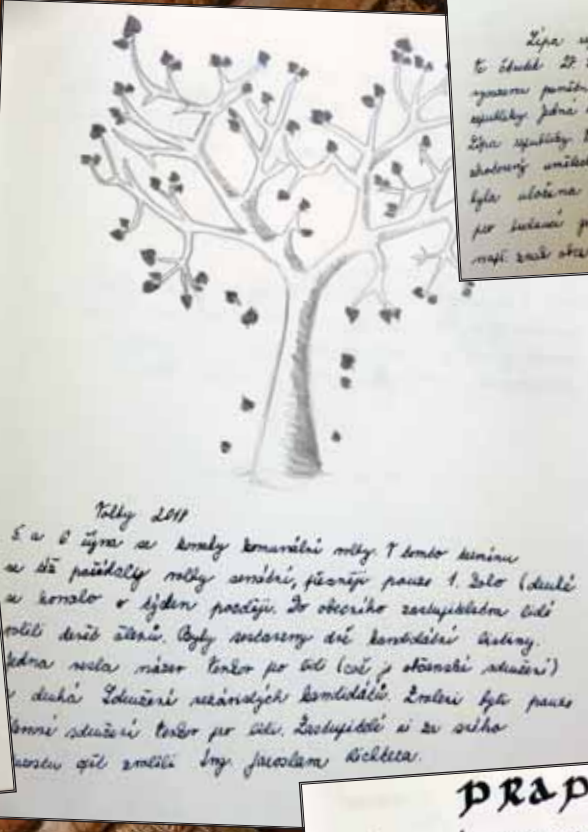 Lípa
republiky. Jedna
Lípa republiky.
byla uložena
pro budoucí
např. znak obce
Volby 2018
5. a 6 října se konaly komunální volby. V tomto termínu
se též pořádaly volby senátní, přesněji pouze 1. kolo (druhé
se konalo o týden později. Do obecního zastupitelstva lidé
volili devět členů. Byly sestaveny dvě kandidátní listiny.
jedna nesla název Tenkor po lidi (což je občanské sdružení)
druhá Sdružení nezávislých kandidátů. Zvoleni byli pouze
sdružení Tenkor pro lidi. Zastupitelé si za svého
starostu opět zvolili Ing. Jaroslava Richtera.
PRAP